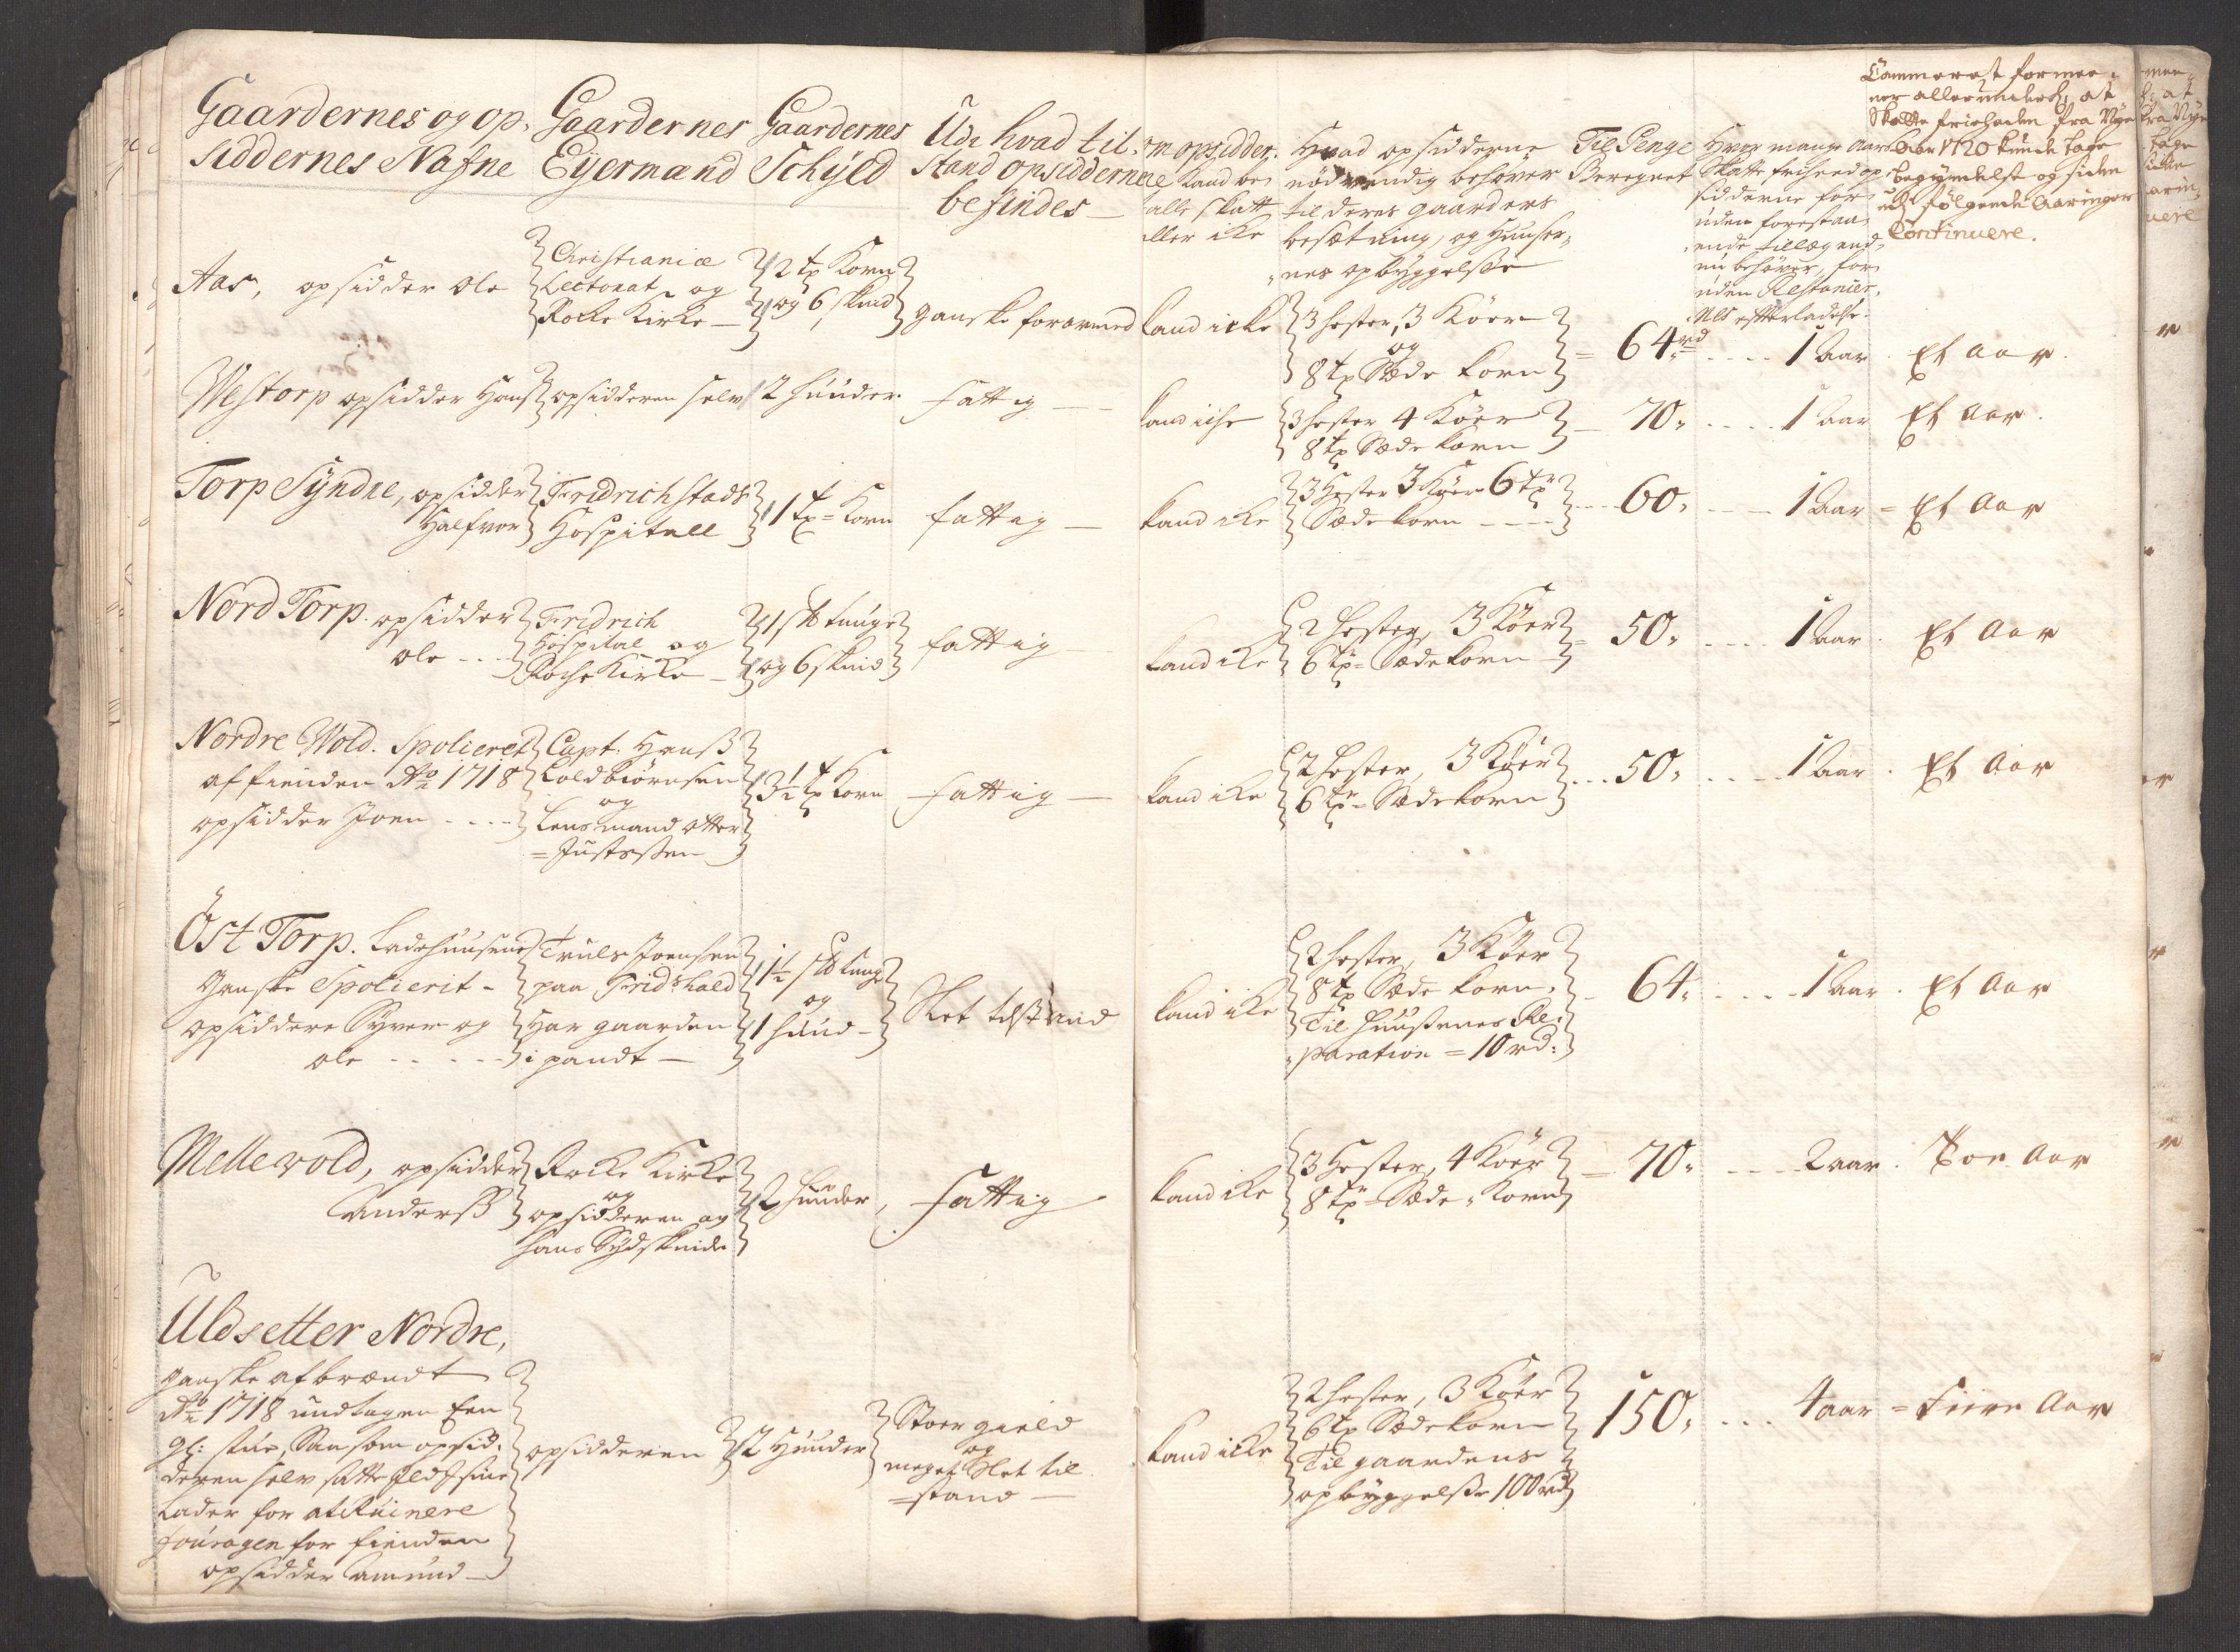 Gaardernes og op-
siddernes Nafne
Gaardernes
Eÿermænd
Gaardernes
Schÿld
Udi hvad til-
stand opsidderne
befindes —
om opsidder-
ne kand be-
talle skatt
eller icke
Hvad opsidderne
nödvendig behöver
til deres gaarders
besætning, og Huuser-
nes opbÿggelsse
Til Penge
Beregnet
Hvor mange Aars
Skatte frihed op-
sidderne for-
uden forestaa-
ende tillæg end-
nu behöver, for-
uden Restancier-
nes efterladelse.
Cammeret formee-
ner allerunderd: at
Skatte friheden fra Nÿe
Aar 1720 kunde tage
begÿndelse og siden
udj fölgende Aaringer
Continuere.
Aas, opsidder Ole
Christianiæ
Lectorat og
Rocke Kirke —
2 tp Korn
og 6 skind
ganske forarmed
kand icke
3 hester, 3 Köer
og
8 tp Sæde korn
= 64 rd
1 Aar
Et Aar.
Westorp opsidder Hans
opsidderen selv
2 huuder.
fattig —
kand iche
3 hester 4 Köer
8 tp Sæde korn
70.
1 Aar
Et Aar.
Torp Sÿndre, opsidder
Halfvor
Fridrichstads
Hospitall
1 tp = Korn
fattig —
kand icke
3 Hester 3 Köer 6 tpr
Sædekorn
60.
1 Aar =
Et Aar
Nord Torp. opsidder
Ole
Fridrich
Hospital og
Roche Kirke —
1 skb tunge
og 6 skind
fattig
kand icke
2 hester, 3 Köer
6 tp = Sædekorn
50.
1 Aar.
Et Aar
Nordre Wold. Spolieret
af fienden Ao 1718
opsidder Joen
Capt: Hanss
Coldbiörnsen
og
Lensmand Otter
= Justessen
3½ tp Korn
fattig —
kand icke
2 hester, 3 Köer
6 tp = Sædekorn
50.
1 Aar.
Et Aar
Öst Torp. Ladehuusene
ganske Spolierit -
opsiddere Sÿver og
Ole
Truls Joensen
paa Fridrhald
Har gaarden
i pandt —
1½ skb tunge
og
1 huud -
Slet tilstand
kand icke
2 hester, 3 Köer
8 tp Sæde korn.
Til huussenes Re-
paration = 10 rd:
64.
1 Aar.
Et Aar
Mellewold, opsidder
Anderss
Rocke Kirke
og
opsidderen og
hans Sÿdskinde
2 huuder,
fattig
kand icke
3 Hester, 4 Köer
8 tp = Sæde Korn
70.
2 aar.
Toe Aar
Uldsetter Nordre,
ganske afbrændt
Ao 1718 undtagen Een
gl: stue, Saasom opsid-
deren selv satte Ild i sine
Lader for at Ruinere
fouragen for fienden
opsidder Amund —
opsidderen
2 Huuder
Stoer gield
og
meget Slet til
= stand —
kand icke
2 hester, 3 Köer
6 tp Sædekorn
Til gaardens
opbÿggelsse 100 rd
150.
4 aar =
Fiire Aar